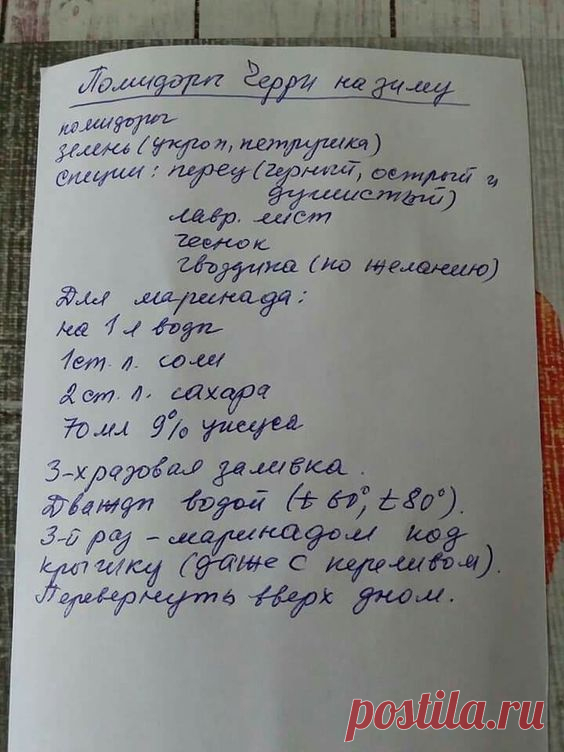 Помидоры Черри на зиму
помидоры
зелень (укроп, петрушка)
специи: перец (черный, острый и
душистый)
лавр. лист
чеснок
гвоздика (по желанию)
Для маринада:
на 1 л воды
1 ст. л. соли
2 ст. л. сахара
70 мл 9% уксуса
3-хразовая заливка.
Дважды водой (t 60°, t 80°).
3-й раз - маринадом под
крышку (даже с переливом).
Перевернуть вверх дном.
postila.ru